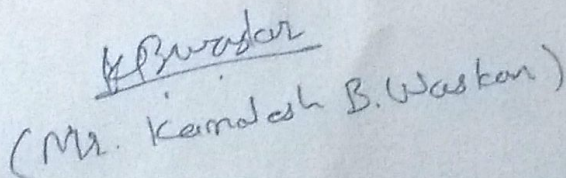 KBWaskar
(Mr. Kamalesh B. Waskar)